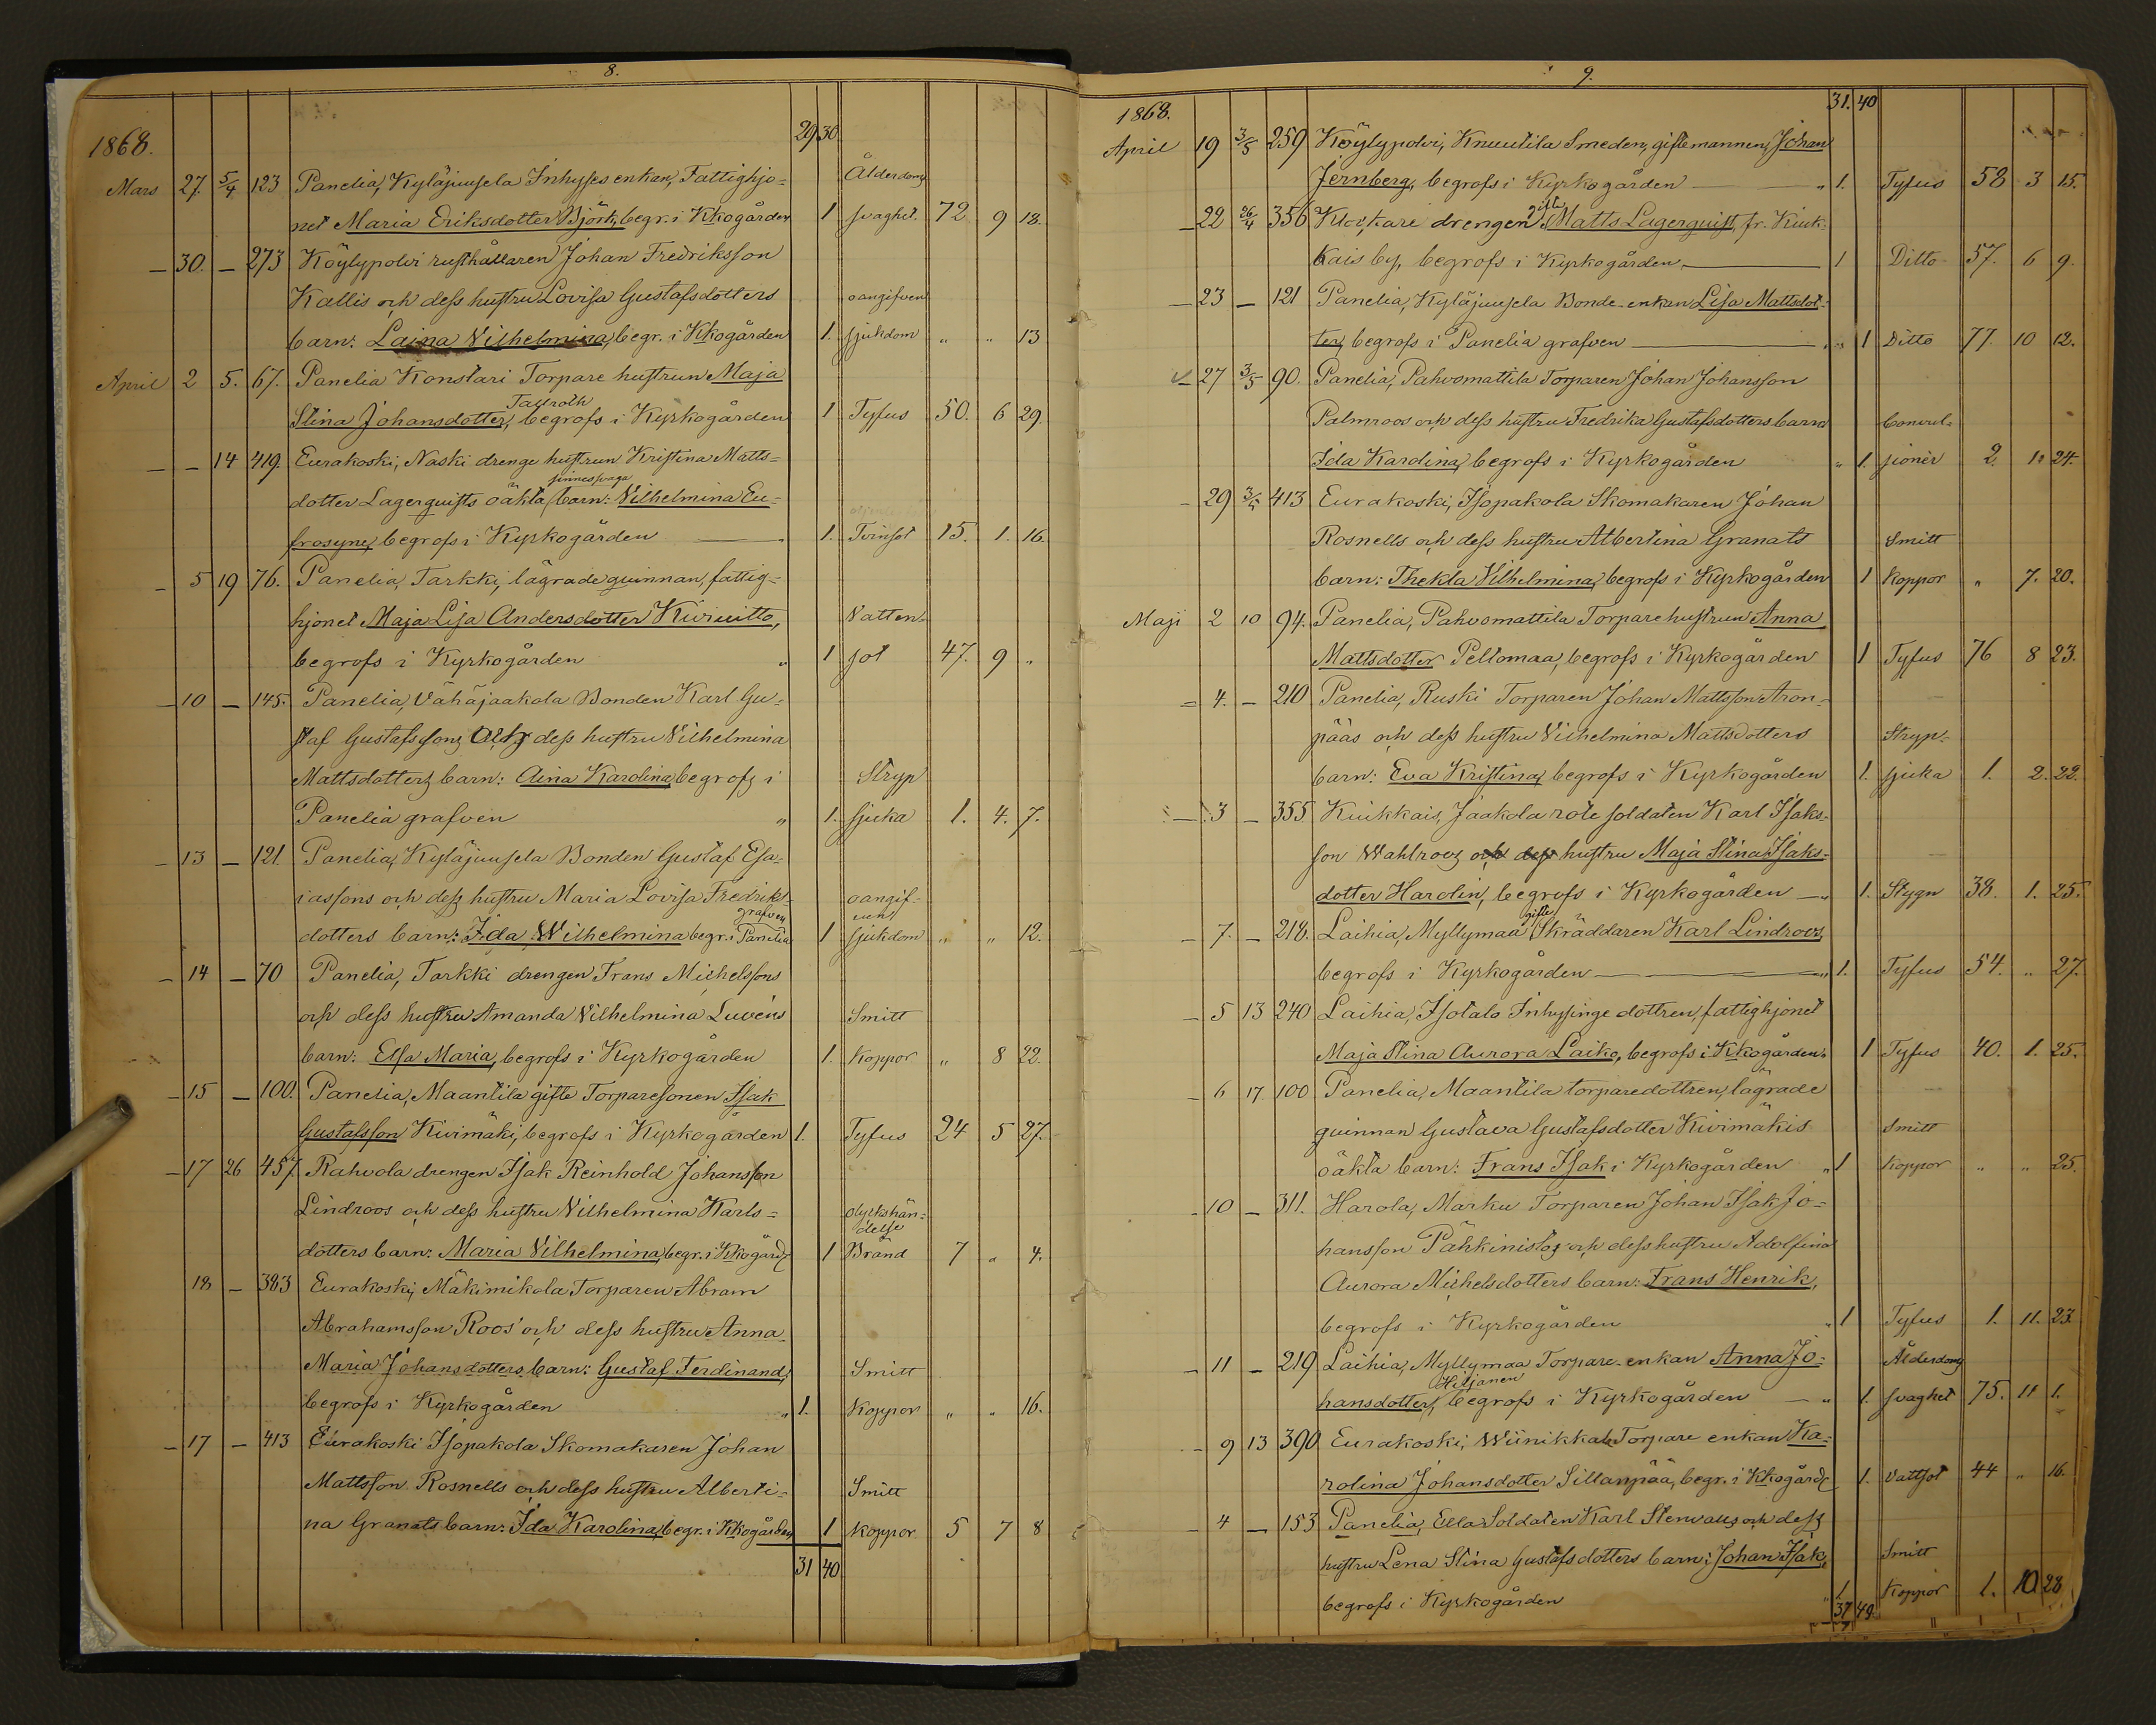 8.
29 30
1868.
Mars 27. 5/4 123 Panelia, Kyläjuusela Inhyses enkan, Fattighjo= Ålderdoms
net Maria Eriksdotter Björk, begr. i Kkogården 1 svaghet. 72 9 18.
— 30. — 273 Köylypolvi rusthållaren Johan Fredriksson
Kallis och dess hustru Lovisa Gustafsdotters oangifven
barn: Laina Vilhelmina, begr. i Kkogården 1. sjukdom „ „ 13
April 2 5. 67. Panelia Konstari Torpare hustrun Maja
Tallroth
Stina Johansdotter, begrofs i Kyrkogården 1 Tyfus 50. 6 29.
— — 14 419. Eurakoski, Naski drenge hustrun Kristina Matts=
sinnessvaga
dotter Lagerquists oäkta barn: Vilhelmina Eu=
frosyne, begrofs i Kyrkogården 1. Tvinsot 15. 1. 16.
— 5 19 76. Panelia, Tarkki, lägrade quinnan, fattig=
hjonet Maja Lisa Andersdotter Kiviuitto, Vatten-
begrofs i Kyrkogården „ 1 sot 47. 9 „
— 10 — 145. Panelia, Vähäjaakola Bonden Karl Gu=
staf Gustafssons och dess hustru Vilhelmina
Mattsdotters barn: Aina Karolina, begrofs i Stryp
Panelia grafven „ 1. sjuka 1. 4. 7.
— 13 — 121. Panelia, Kyläjuusela Bonden Gustaf Esa-
iassons och dess hustru Maria Lovisa Fredriks- oangif-
grafven
dotters barn: Ida Wilhelmina begr. i Panelia 1 sjukdom „ „ 12.
— 14 — 70 Panelia, Tarkki drengen Frans Michelssons
och dess hustru Amanda Vilhelmina Luvéns Smitt
barn: Elsa Maria, begrofs i Kyrkogården 1. Koppor „ 8 22.
— 15 — 100. Panelia, Maantila gifte Torparesonen Isak
Gustafsson Kivimäki, begrofs i Kyrkogården 1. Tyfus 24 5 27.
— 17 26 457. Rahvola drengen Isak Reinhold Johansson
Lindroos och dess hustru Vilhelmina Karls= olyckshän=
delse
dotters barn: Maria Vilhelmina, begr. i Kkogård. 1 Bränd 7 „ 4.
18 — 383 Eurakoski, Mäkimikola Torparen Abram
Abrahamsson Roos' och dess hustru Anna
Maria Johansdotters barn: Gustaf Ferdinand, Smitt
begrofs i Kyrkogården „ 1. Koppor „ „ 16.
— 17 — 413 Eurakoski Isopakola Skomakaren Johan
Mattsson Rosnells och dess hustru Alberti= Smitt
na Granats barn: Ida Karolina, begr. i Kkogården 1 koppor 5 7 8
31 40
9.
31. 40
1868.
April 19 3/5 259 Köylypolvi, Knuutila Smeden, giftemannen, Johan
Jernberg, begrofs i Kyrkogården „ 1. Tyfus 58 3 15.
gifte
— 22 26/4 356 Klockare drengen Matts Lagerquist, fr. Kiuk-
kais by, begrofs i Kyrkogården 1 Ditto 57. 6 9.
— 23 — 121 Panelia, Kyläjuusela Bonde-enkan Lisa Mattsdot-
ter, begrofs i Panelia grafven „ 1 Ditto 77. 10 12.
— 27 3/5 90. Panelia, Pahvomattila Torparen Johan Johansson
Palmroos och dess hustru Fredrika Gustafsdotters barn Convul=
Ida Karolina, begrofs i Kyrkogården „ 1. sioner 2. 10 24.
— 29 3/5 413 Eurakoski, Isopakola Skomakaren Johan
Rosnells och dess hustru Albertina Granats Smitt
barn: Thekla Vilhelmina, begrofs i Kyrkogården 1 koppor „ 7. 20.
Maji 2 10 94. Panelia, Pahvomattila Torparehustrun Anna
Mattsdotter Peltomaa, begrofs i Kyrkogården 1 Tyfus 76 8 23.
— 4. — 210 Panelia, Ruski Torparen Johan Mattsson Aron-
pääs och dess hustru Vilhelmina Mattsdotters Stryp-
barn: Eva Kristina, begrofs i Kyrkogården 1. sjuka 1. 2. 22.
— 3 — 355 Kiukkais, Jaakola rote soldaten Karl Isaks-
son Wahlroos och dess hustru Maja Stina Isaks-
dotter Harolin, begrofs i Kyrkogården „ 1. Stygn 38. 1. 25.
gifte
— 7. — 218. Laihia, Myllymaa Skräddaren Karl Lindroos,
begrofs i Kyrkogården „ 1. Tyfus 54. „ 27.
— 5 13 240 Laihia, Isotalo Inhysinge dottren, fattighjonet
Maja Stina Aurora Laiko, begrofs i Kkogården. 1 Tyfus 40. 1. 25.
— 6 17. 100 Panelia, Maantila torparedottren, lägrade
quinnan Gustava Gustafsdotter Kivimäkis Smitt
oäkta barn: Frans Isak i Kyrkogården „ 1 koppor „ „ 25.
— 10 — 311. Harola, Marku Torparen Johan Isak Jo=
hansson Pähkinistos och dess hustru Adolfina
Aurora Michelsdotters barn: Frans Henrik,
begrofs i Kyrkogården „ 1 Tyfus 1. 11. 23.
— 11 — 219 Laihia, Myllymaa Torpare-enkan Anna Jo= Ålderdoms
Hiljanen
hansdotter, begrofs i Kyrkogården — „ 1. svaghet 75. 11 1.
— 9 13 390 Eurakoski, Wiinikkala Torpare enkan Ka=
rolina Johansdotter Sillanpää, begr. i Kkogård. 1. Vattsot 44 „ 16.
— 4 — 153 Panelia, Ella Soldaten Karl Stenvalls och dess
hustru Lena Stina Gustafsdotters barn: Johan Isak, Smitt
begrofs i Kyrkogården „ 1. Koppor 1. 10 28
37 49.